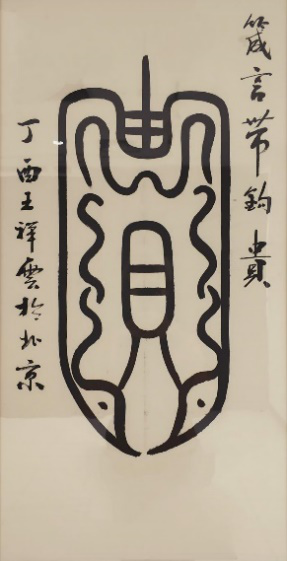 箴言带鈎 貴
丁酉王祥雲於北京